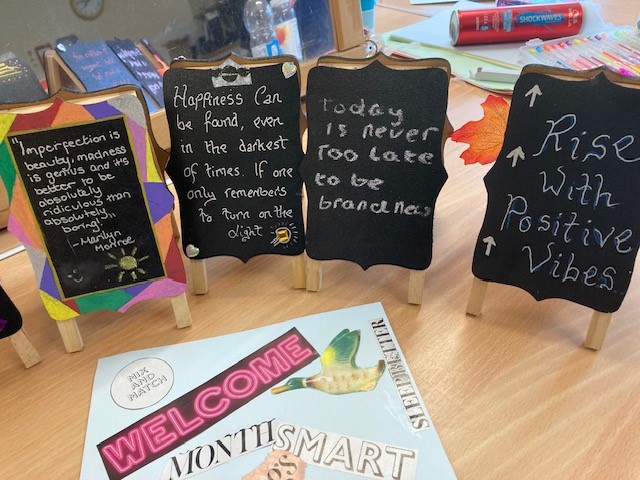 "Imperfection is
beauty, madness
is genius and it's
better to be
absolutely
ridiculous than
absolutely...
boring!"
- Marilyn
Monroe
Happiness Can
be found, even
in the darkest
of times. If one
only remembers
to turn on the
light
Today
is never
too late
to be
brand new
Rise
With
Positive
Vibes
SHOCKWAVES
MIX
AND
MATCH
WELCOME
SLEEP BETTER
MONTH
SMART